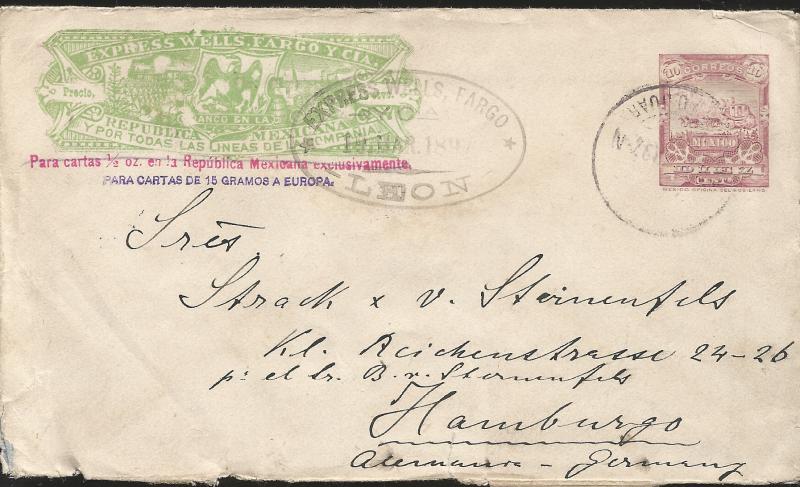 EXPRESS WELLS, FARGO Y CIA.
Precio,
FRANCO EN LA
REPUBLICA MEXICANA
Y POR TODAS LAS LINEAS DE LA COMPAÑIA
Para cartas ½ oz. en la República Mexicana exclusivamente.
PARA CARTAS DE 15 GRAMOS A EUROPA.
EXPRESS WELLS, FARGO
MAR. 189
LEON
10 CORREOS 10
MEXICO
JUAR
Srēs
Strack x v. Sternenfels
Kl. Reichenstrasse 24-26
p: el Sr. B. v. Sternenfels
Hamburgo
Alemania - Germany